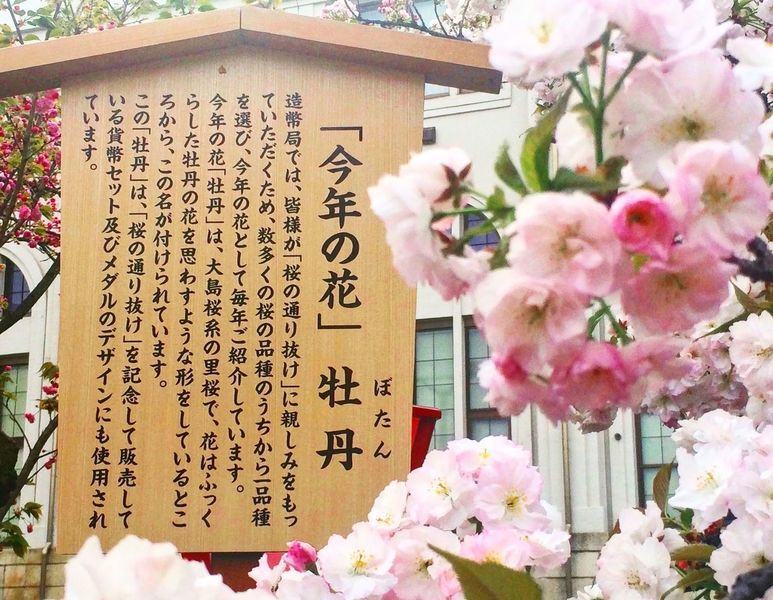 「今年の花」 牡丹
ぼたん
造幣局では、皆様が「桜の通り抜け」に親しみをもっ
ていただくため、数多くの桜の品種のうちから一品種
を選び、今年の花として毎年ご紹介しています。
今年の花「牡丹」は、大島桜系の里桜で、花はふっく
らした牡丹の花を思わすような形をしているとこ
ろから、この名が付けられています。
この「牡丹」は、「桜の通り抜け」を記念して販売して
いる貨幣セット及びメダルのデザインにも使用され
ています。